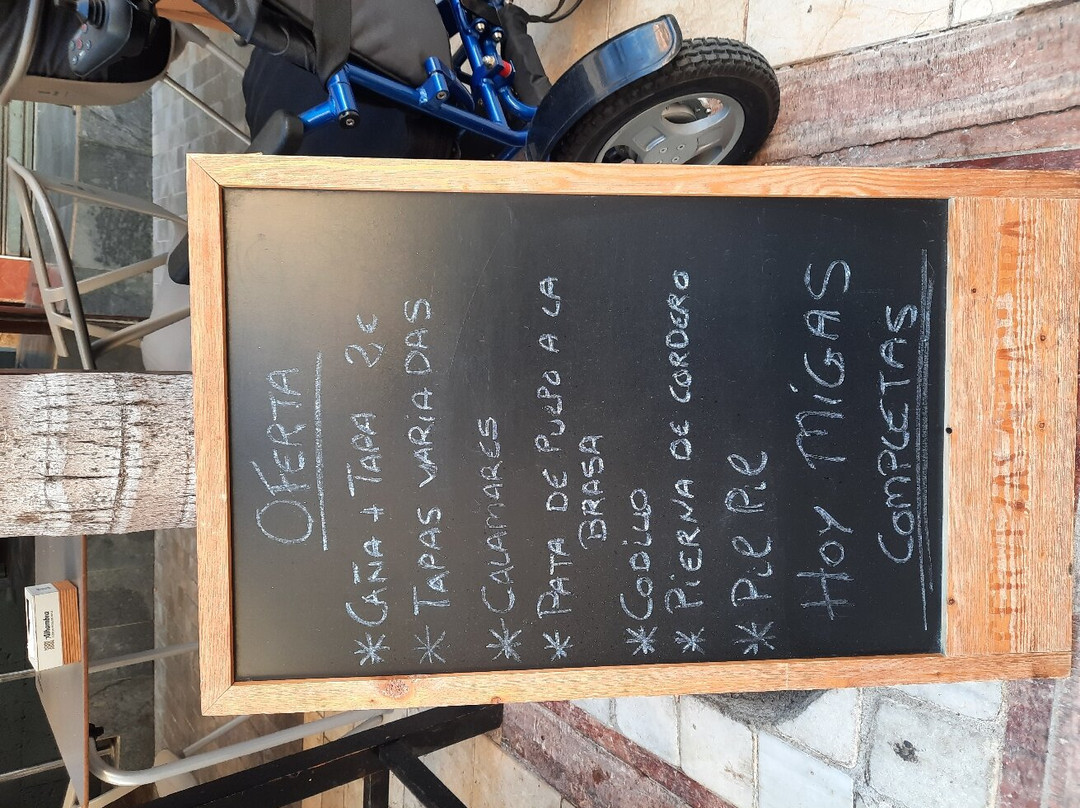 OFERTA
* CAÑA + TAPA 2€
* TAPAS VARIADAS
* CALAMARES
* PATA DE PULPO A LA
BRASA
* CODILLO
* PIERNA DE CORDERO
* PIL PIL
HOY MIGAS
COMPLETAS
Alhambra